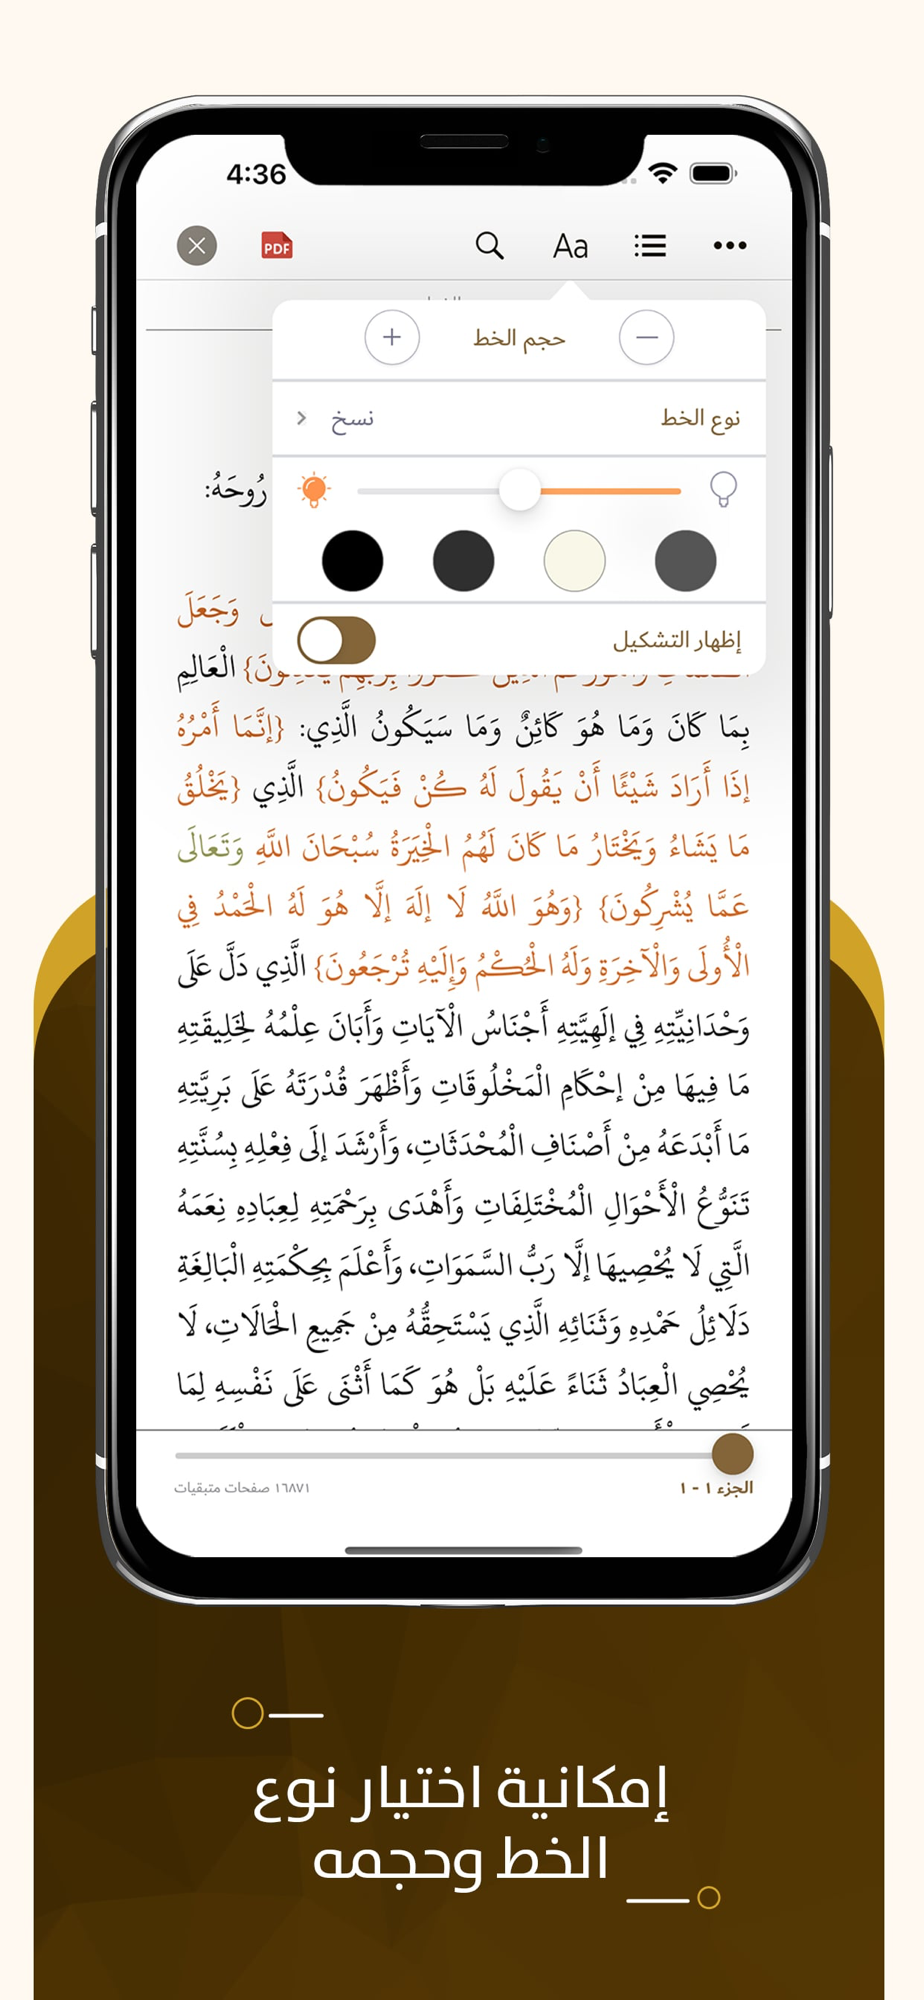 4:36
PDF
Aa
حجم الخط
نوع الخط
نسخ
إظهار التشكيل
رُوحَهُ:
وَجَعَلَ
الْعَالِمِ
بِمَا كَانَ وَمَا هُوَ كَائِنٌ وَمَا سَيَكُونُ الَّذِي: {إِنَّمَا أَمْرُهُ
إِذَا أَرَادَ شَيْئًا أَنْ يَقُولَ لَهُ كُنْ فَيَكُونُ} الَّذِي {يَخْلُقُ
مَا يَشَاءُ وَيَخْتَارُ مَا كَانَ لَهُمُ الْخِيَرَةُ سُبْحَانَ اللَّهِ وَتَعَالَى
عَمَّا يُشْرِكُونَ} {وَهُوَ اللَّهُ لَا إِلَهَ إِلَّا هُوَ لَهُ الْحَمْدُ فِي
الْأُولَى وَالْآخِرَةِ وَلَهُ الْحُكْمُ وَإِلَيْهِ تُرْجَعُونَ} الَّذِي دَلَّ عَلَى
وَحْدَانِيَّتِهِ فِي إِلَهِيَّتِهِ أَجْنَاسُ الْآيَاتِ وَأَبَانَ عِلْمُهُ لِخَلِيقَتِهِ
مَا فِيهَا مِنْ إِحْكَامِ الْمَخْلُوقَاتِ وَأَظْهَرَ قُدْرَتَهُ عَلَى بَرِيَّتِهِ
مَا أَبْدَعَهُ مِنْ أَصْنَافِ الْمُحْدَثَاتِ، وَأَرْشَدَ إِلَى فِعْلِهِ بِسُنَّتِهِ
تَنَوُّعُ الْأَحْوَالِ الْمُخْتَلِفَاتِ وَأَهْدَى بِرَحْمَتِهِ لِعِبَادِهِ نِعَمَهُ
الَّتِي لَا يُحْصِيهَا إِلَّا رَبُّ السَّمَوَاتِ، وَأَعْلَمَ بِحِكْمَتِهِ الْبَالِغَةِ
دَلَائِلُ حَمْدِهِ وَثَنَائِهِ الَّذِي يَسْتَحِقُّهُ مِنْ جَمِيعِ الْحَالَاتِ، لَا
يُحْصِي الْعِبَادُ ثَنَاءً عَلَيْهِ بَلْ هُوَ كَمَا أَثْنَى عَلَى نَفْسِهِ لِمَا
الجزء ١ - ١
١٦٨٧١ صفحات متبقيات
إمكانية اختيار نوع
الخط وحجمه